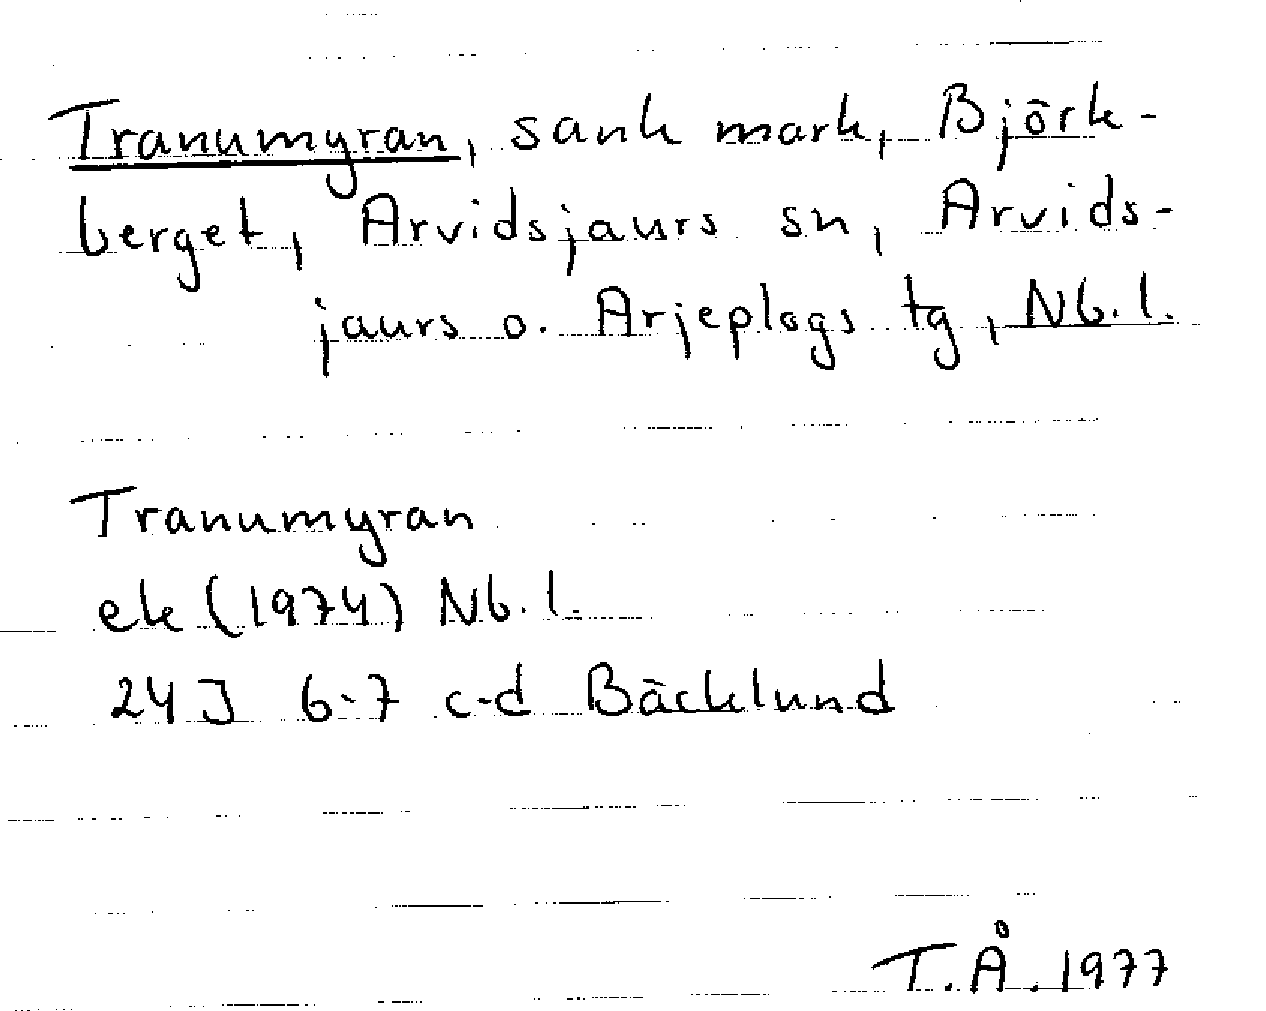 Tranumyran, sank mark, Björk-
berget, Arvidsjaurs sn, Arvids-
jaurs o. Arjeplogs tg, Nb. l.
Tranumyran
ek (1974) Nb. l.
24J 6-7 c-d Bäcklund
T.Å. 1977